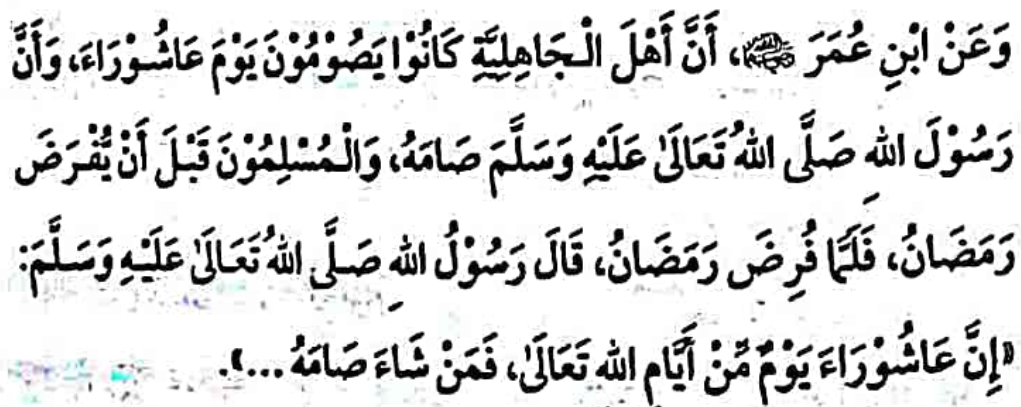 وَعَنْ ابْنِ عُمَرَ ﷺ، أَنَّ أَهْلَ الْجَاهِلِيَّةِ كَانُوْا يَصُوْمُوْنَ يَوْمَ عَاشُوْرَاءَ، وَأَنَّ
رَسُوْلَ اللهِ صَلَّى اللهُ تَعَالَىٰ عَلَيْهِ وَسَلَّمَ صَامَهُ، وَالْمُسْلِمُوْنَ قَبْلَ أَنْ يُّفْرَضَ
رَمَضَانُ، فَلَمَّا فُرِضَ رَمَضَانُ، قَالَ رَسُوْلُ اللهِ صَلَّى اللهُ تَعَالَىٰ عَلَيْهِ وَسَلَّمَ:
«إِنَّ عَاشُوْرَاءَ يَوْمٌ مِّنْ أَيَّامِ اللهِ تَعَالَىٰ، فَمَنْ شَاءَ صَامَهُ ...».